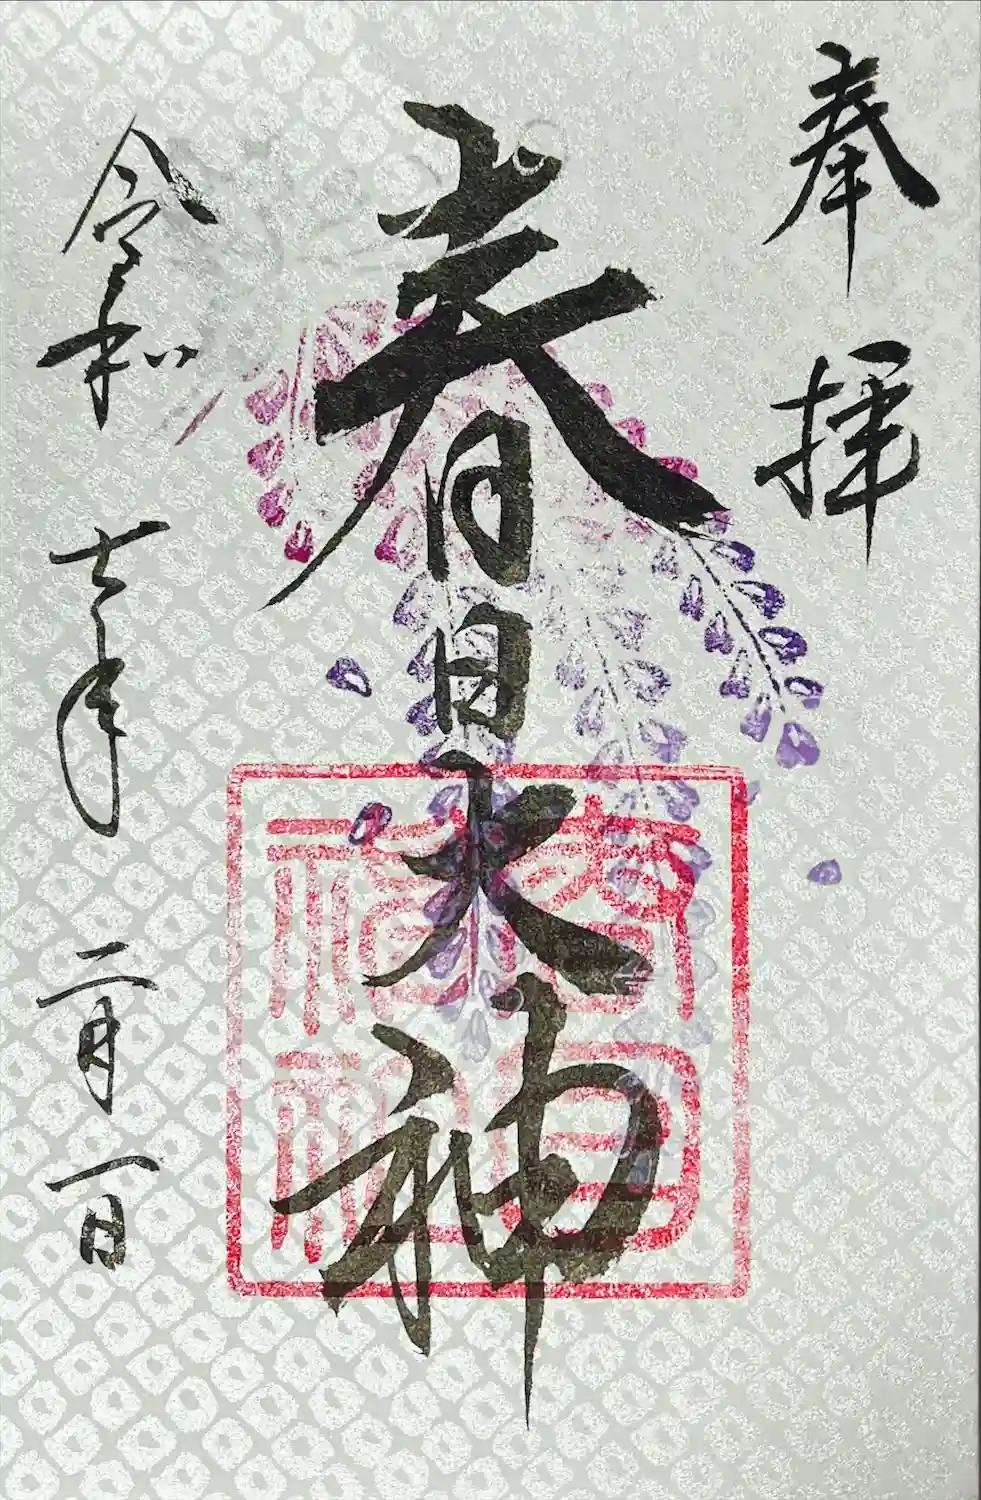 奉拝
春日大神
春日
神社
令和七年二月一日